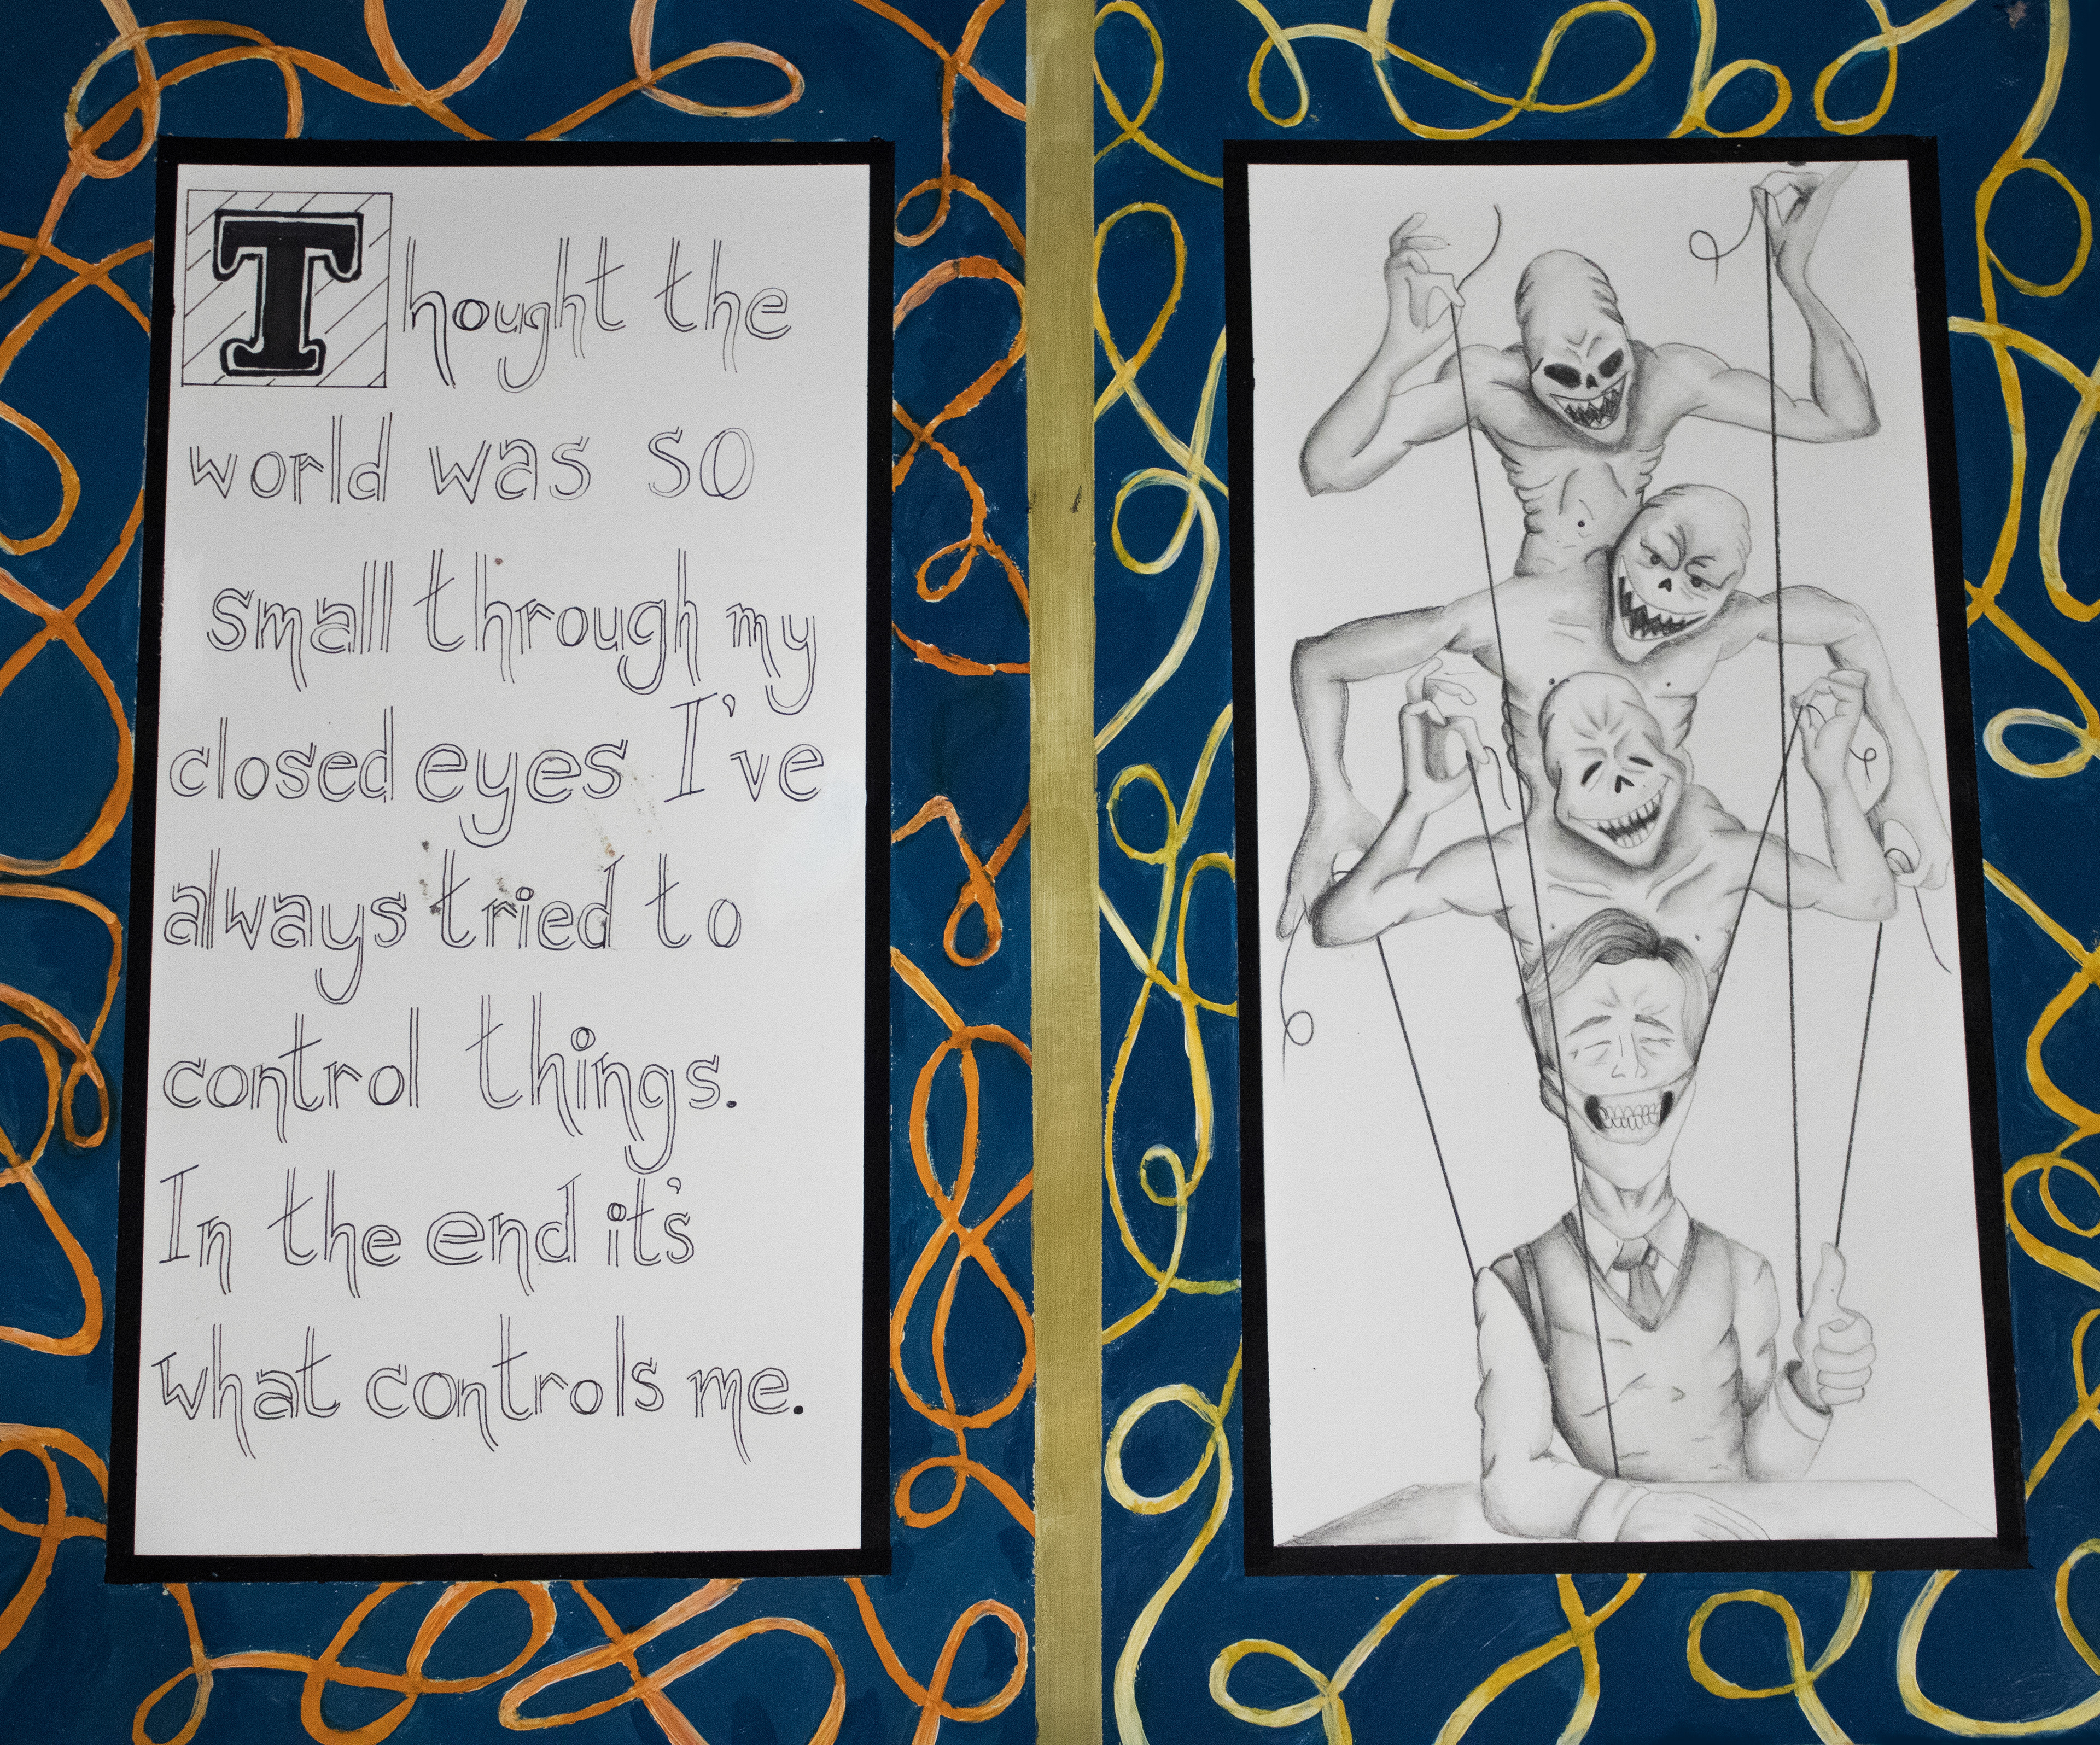 Thought the
world was so
small through my
closed eyes I've
always tried to
control things.
In the end it's
what controls me.